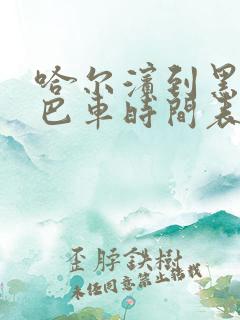 哈尔濱到黑
巴車時間表
歪脖鉄樹
未经同意禁止转载